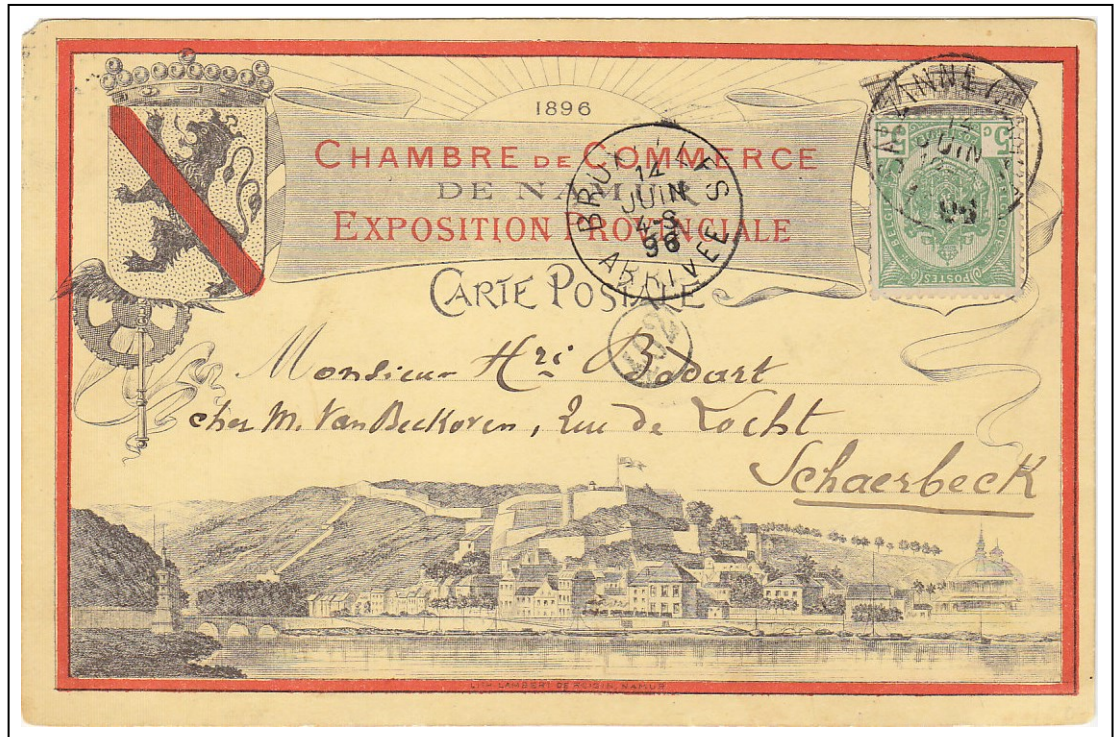 1896
CHAMBRE DE COMMERCE
DE NAMUR
EXPOSITION PROVINCIALE
CARTE POSTALE
BRUXELLES
14
JUIN
4-S
96
ARRIVEE
14
JUIN
96
5 C 5
BELGIQUE
POSTES
Monsieur Hri Bodart
chez M. Van Beckoven, Rue de Locht
Schaerbeck
LITH. LAMBERT DE ROISIN, NAMUR